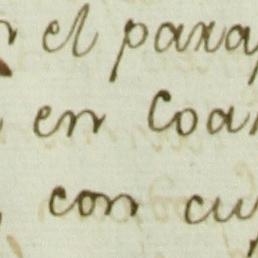 el para
en Coa
con cu